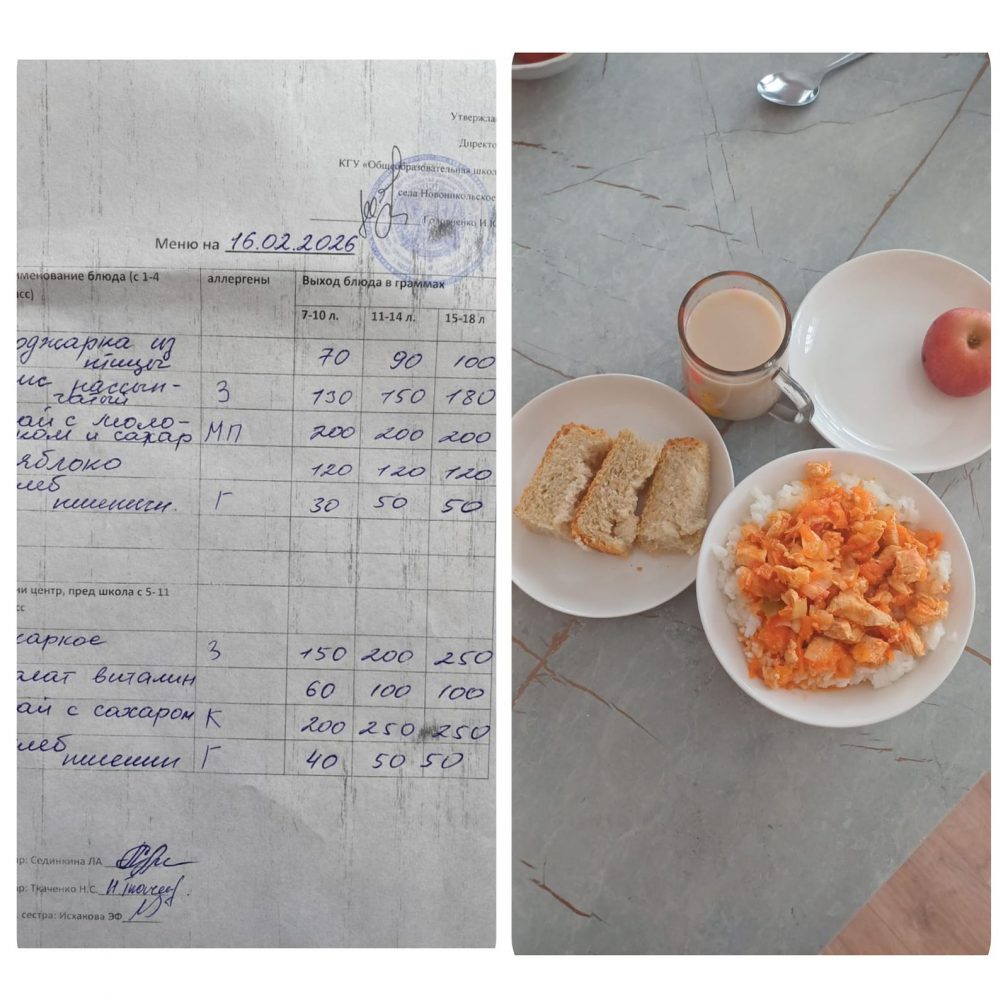 Утвержда
Директо
КГУ «Общеобразовательная школ
села Новоникольское
Головченко И.Ю
Меню на 16.02.2026
именование блюда (с 1-4 асс) аллергены Выход блюда в граммах
7-10 л. 11-14 л. 15-18 л
оджарка из
птицы 70 90 100
ис рассып-
чатый З 130 150 180
ай с моло-
ком и сахар МП 200 200 200
яблоко 120 120 120
леб
пшеничн. Г 30 50 50
ни центр, пред школа с 5-11
сс
аркое З 150 200 250
алат витамин 60 100 100
ай с сахаром К 200 250 250
леб
пшенич Г 40 50 50
ар: Сединкина ЛА
ар: Ткаченко Н.С.
. сестра: Исхакова ЭФ